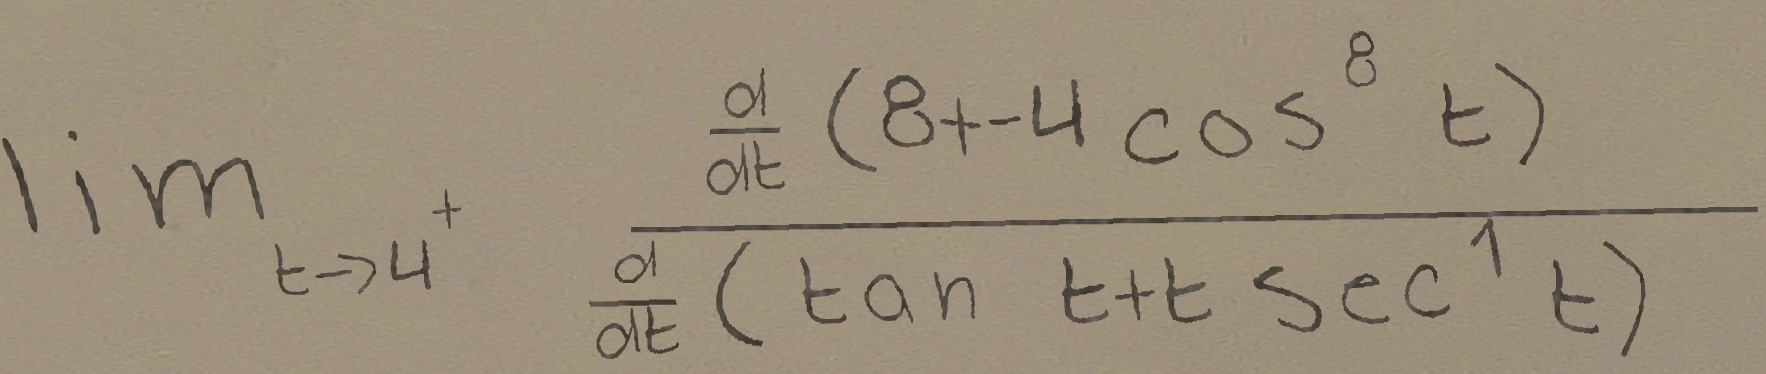 \lim_{t \to 4^+} \frac{\frac{d}{dt}(8+-4\cos^8 t)}{\frac{d}{dt}(\tan t+t\sec^1 t)}